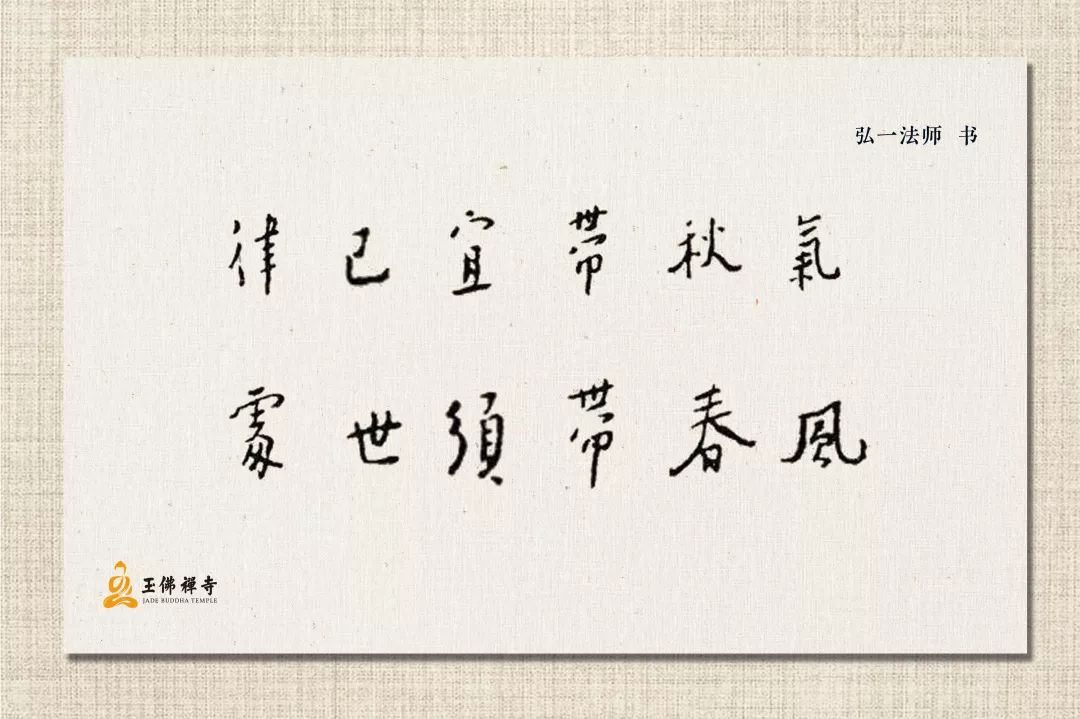 弘一法师 书
律己宜帶秋氣
處世須帶春風
玉佛禅寺
JADE BUDDHA TEMPLE